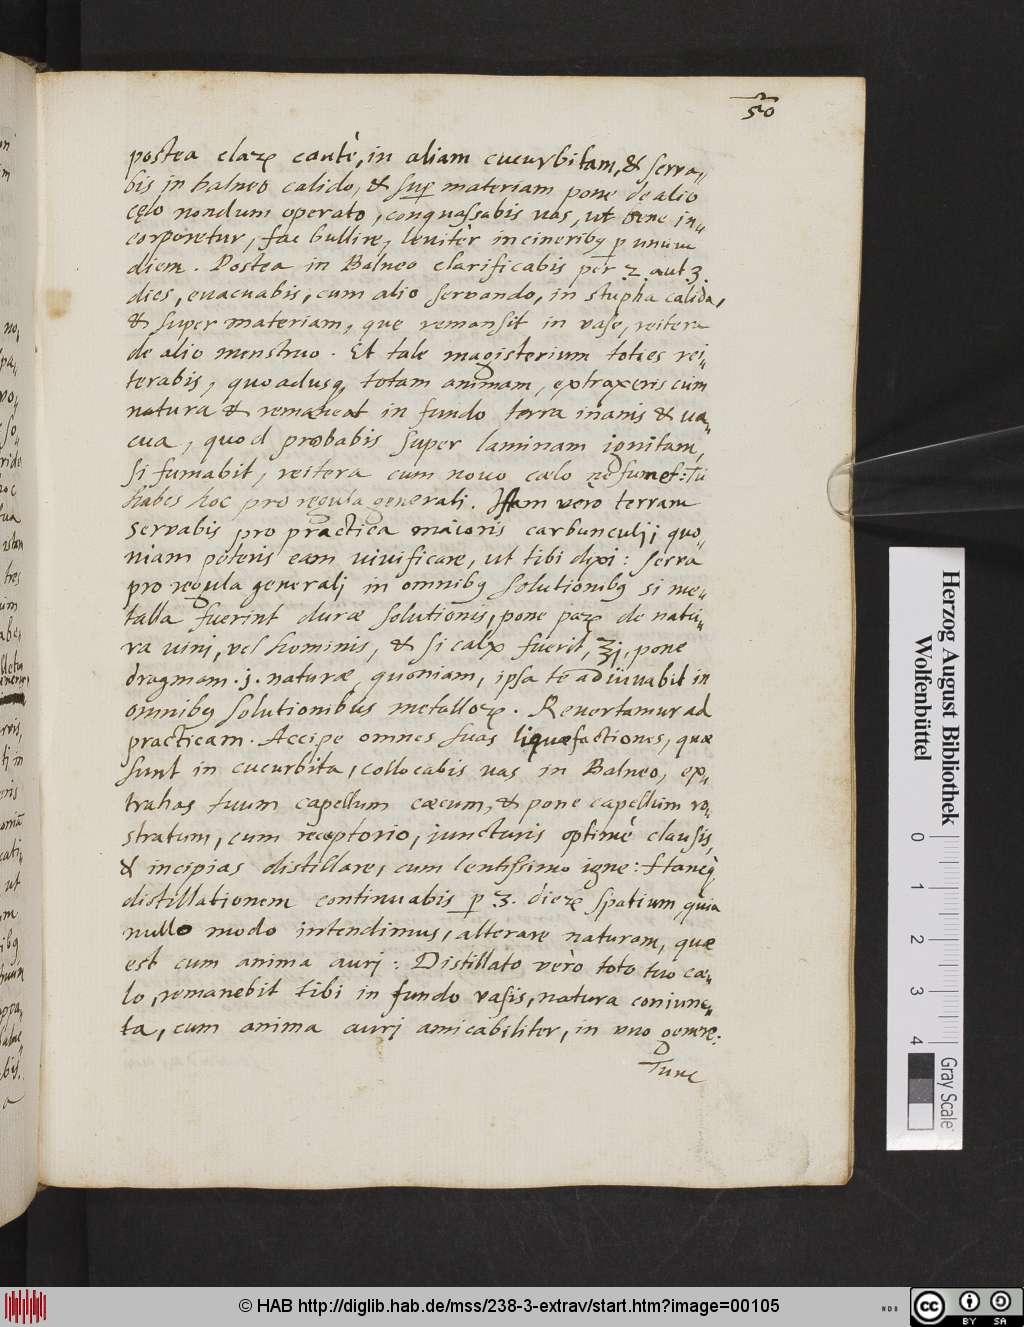 50
postea claꝝ cautè, in aliam cucurbitam, & serva„
bis in balneo calido, & sup materiam pone de alio
cęlo nondum operato, conquassabis vas, ut bene in„
corporetur, fac bullire, leviter in cineribꝫ p unum
diem. Postea in Balneo clarificabis per 2. aut 3.
dies, evacuabis, cum alio servando, in stupha calida,
& super materiam, que remansit in vase, reitera
de alio menstruo. Et tale magisterium toties rei„
terabis, quoadusq, totam animam, extraxeris cum
natura & remaneat in fundo terra inanis & va„
cua, quod probabis super laminam ignitam,
si fumabit, reitera cum novo cœlo : Tu
habes hoc pro regula generali. Istam vèro terram
servabis pro practica maioris carbunculi; quo„
niam poteris eam vivificare, ut tibi dixi: serva
pro regula generalj in omnibꝫ solutionibꝫ si me„
talla fuerint duræ solutionis, pone paꝝ de natu„
ra vini, vel hominis, & si calx fuerit, ʒj, pone
dragmam .j. naturæ, quoniam, ipsa te adiuvabit in
omnibꝫ solutionibus metalloꝝ. Revertamur ad
practicam. Accipe omnes suas liquæfactiones, quæ
sunt in cucurbita, collocabis vas in Balneo, ex„
trahas tuum capellum cæcum, & pone capellum ro„
stratum, cum receptorio, iuncturis optimè clausis,
& incipias distillare, cum lentissimo igne: Hancq̀
distillationem continuabis p 3. dieꝝ spatium, quia
nullo modo intendimus, alterare naturam, quæ
est cum anima aurj: Distillato vèro toto tuo cæ„
lo, remanebit tibi in fundo vasis, natura coniunc„
ta, cum anima aurj amicabiliter, in uno genere:
Tunc
Herzog August Bibliothek
Wolfenbüttel
0 1 2 3 4
Gray Scale
© HAB http://diglib.hab.de/mss/238-3-extrav/start.htm?image=00105
cc BY SA